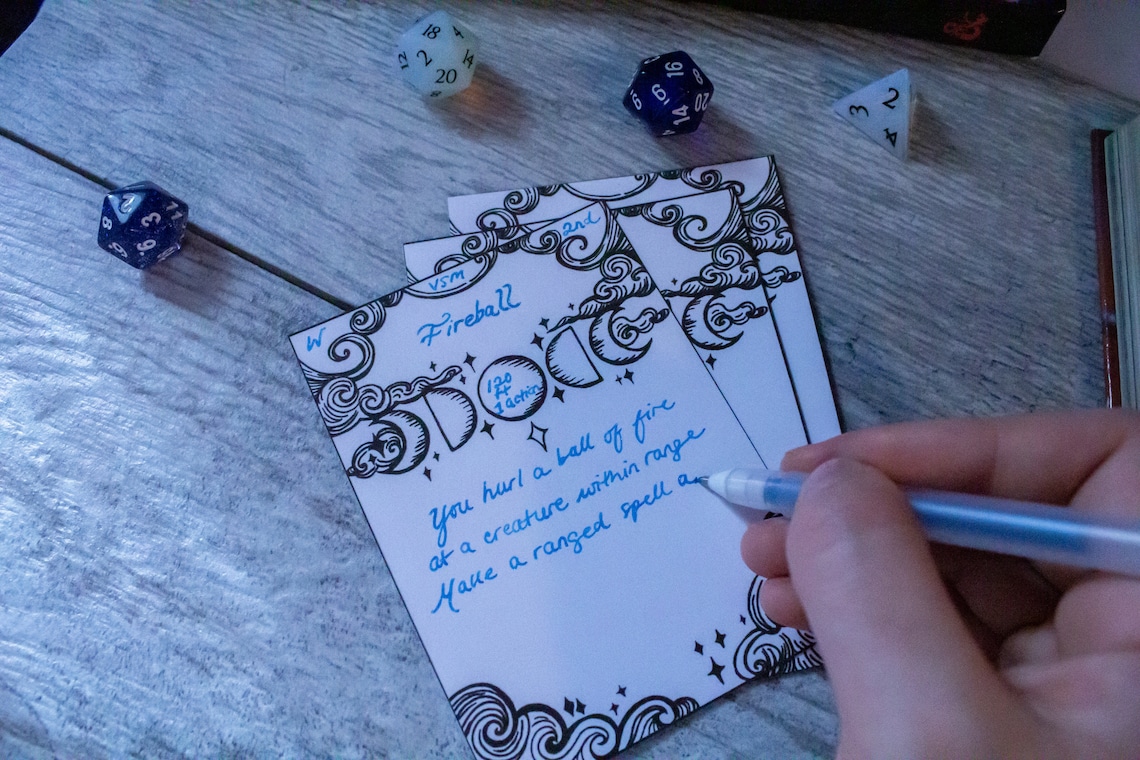 18
4
12
2
14
20
8
16
8
9
6
20
14
3
2
4
8
2
11
3
6
9
2nd
VSM
W
Fireball
120
ft
1 action
You hurl a ball of fire
at a creature within range
Make a ranged spell a
&